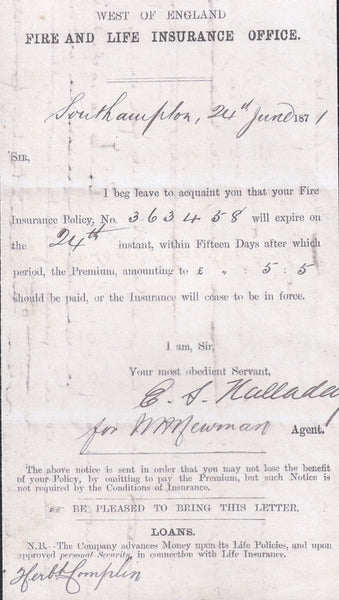 WEST OF ENGLAND
FIRE AND LIFE INSURANCE OFFICE.
Southampton, 24th June 1871
SIR,
I beg leave to acquaint you that your Fire
Insurance Policy, No. 363458 will expire on
the 24th instant, within Fifteen Days after which
period, the Premium, amounting to £ „ : 5 : 5
should be paid, or the Insurance will cease to be in force.
I am, Sir,
Your most obedient Servant,
E. S. Halladey
for W H Newman Agent.
The above notice is sent in order that you may not lose the benefit
of your Policy, by omitting to pay the Premium, but such Notice is
not required by the Conditions of Insurance.
BE PLEASED TO BRING THIS LETTER.
LOANS.
N.B.—The Company advances Money upon its Life Policies, and upon
approved personal Security, in connection with Life Insurance.
Herbt Complin